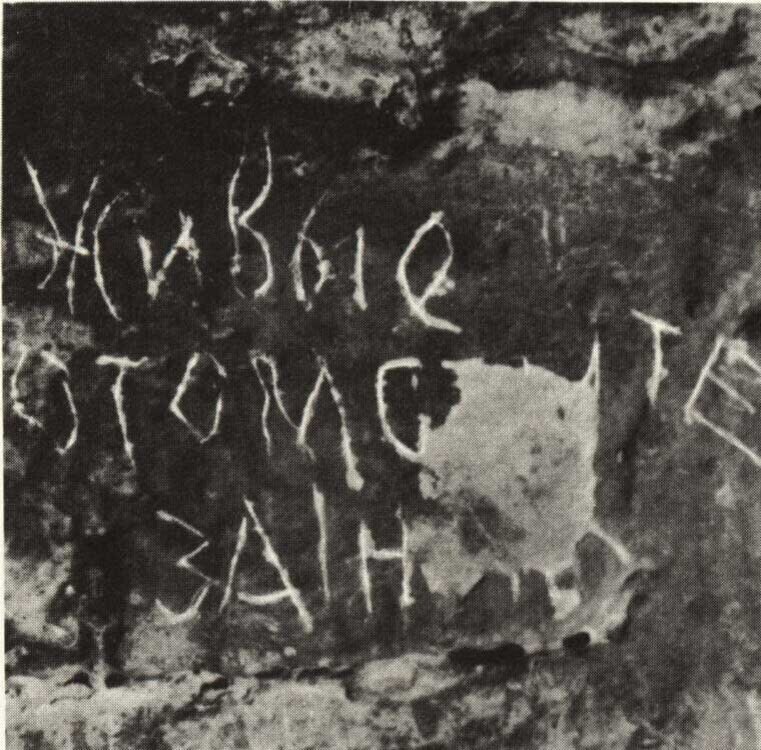 Живые
ОТОМС ТЕ
ЗА Н